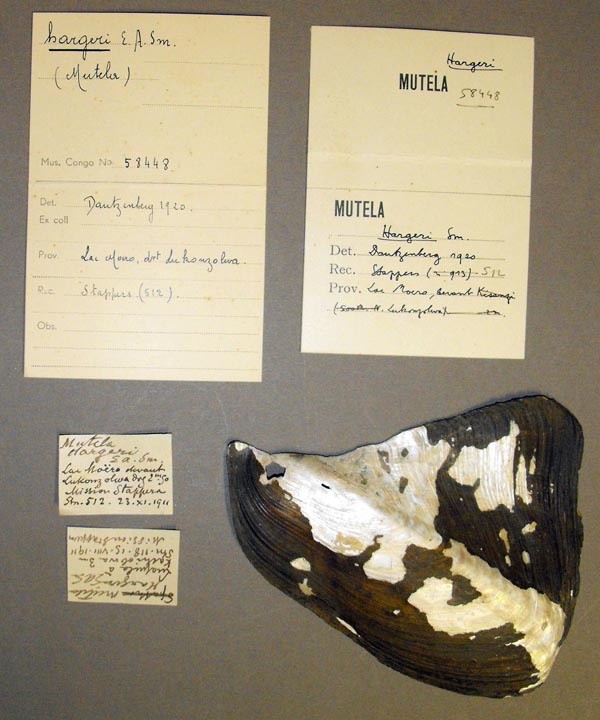 hargeri E. A. Sm.
(Mutela)
Mus. Congo No 58448
Det. Dautzenberg 1920.
Ex coll
Prov. Lac Moero, dvt Lukonzolwa.
Rec. Stappers (512).
Obs.
Hargeri
MUTELA
58448
MUTELA
Hargeri Sm.
Det. Dautzenberg 1920
Rec. Stappers (= 913) 512
Prov. Lac Moero, devant
Lukonzolwa)
Mutela
Hargeri
E.A. Sm.
Lac Moëro devant
Lukonzolwa
Mission Stappers
Stn. 512. 23.XI.1911
Mutela
Hargeri
3m
Stn. 118. 15. VIII. 1911
Mission Stappers